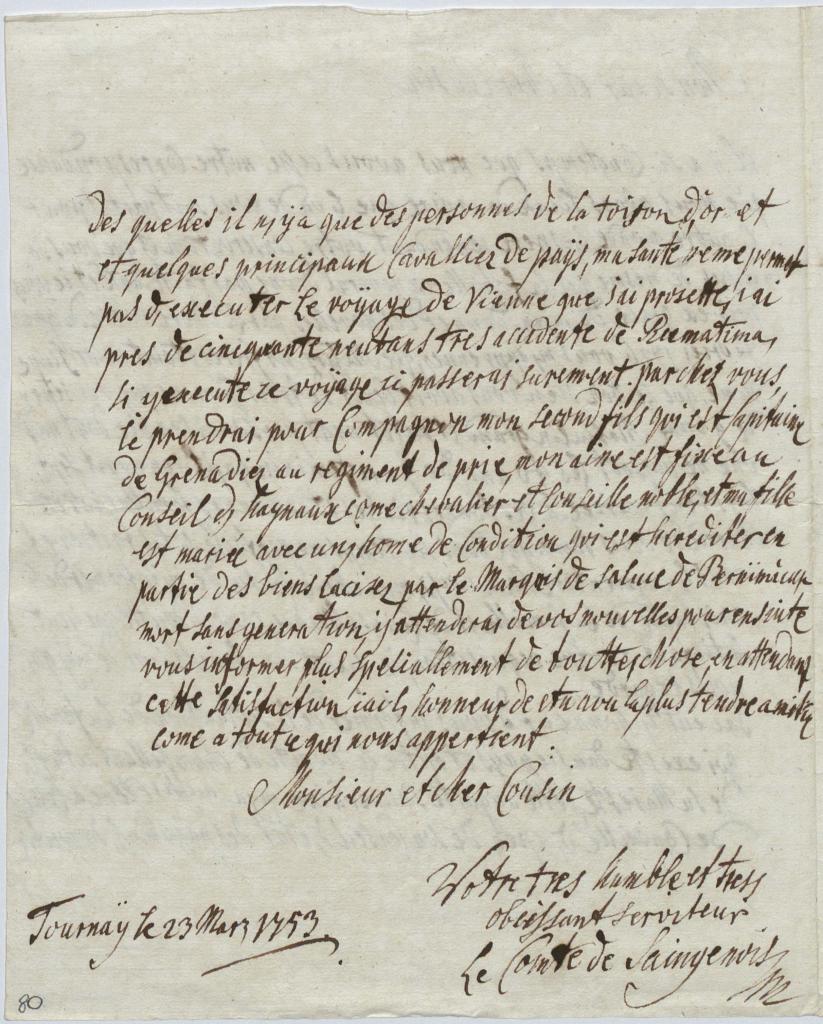 des quelles il n,ÿa que des personnes de la toison d,or et
et quelques principaux Cavallier de païs, ma santé ne me permet
pas d,executer le voÿage de Vienne que j'ai projette, j ai
pres de cincquante neuf ans tres accidente de Reumatima,
si y execute ce voÿage ie passerai surement par chez vous,
le prendrai pour Compagnon mon second fils qui est Capitaine
de Grenadier au regiment de prie, mon aine est fixe au
Conseil d, haynaux come chevalier et Conseille noble, et ma fille
est mariée avec un home de Condition qui est heréditer en
partie des biens laisez par le Marquis de Saluce de
mort sans generation, j,attenderai de vos nouvelles pour ensuite
vous informer plus speciallement de toutte chose, en attendant
cette satisfaction iai l, honneur de etre avec la plus tendre amitie
come a tout ce qui nous appertient.
Monsieur et cher Cousin
Votre tres humble et tres
obeissant serviteur
Le Comte de Saingenois
Tournaÿ le 23 Mars 1753.
80